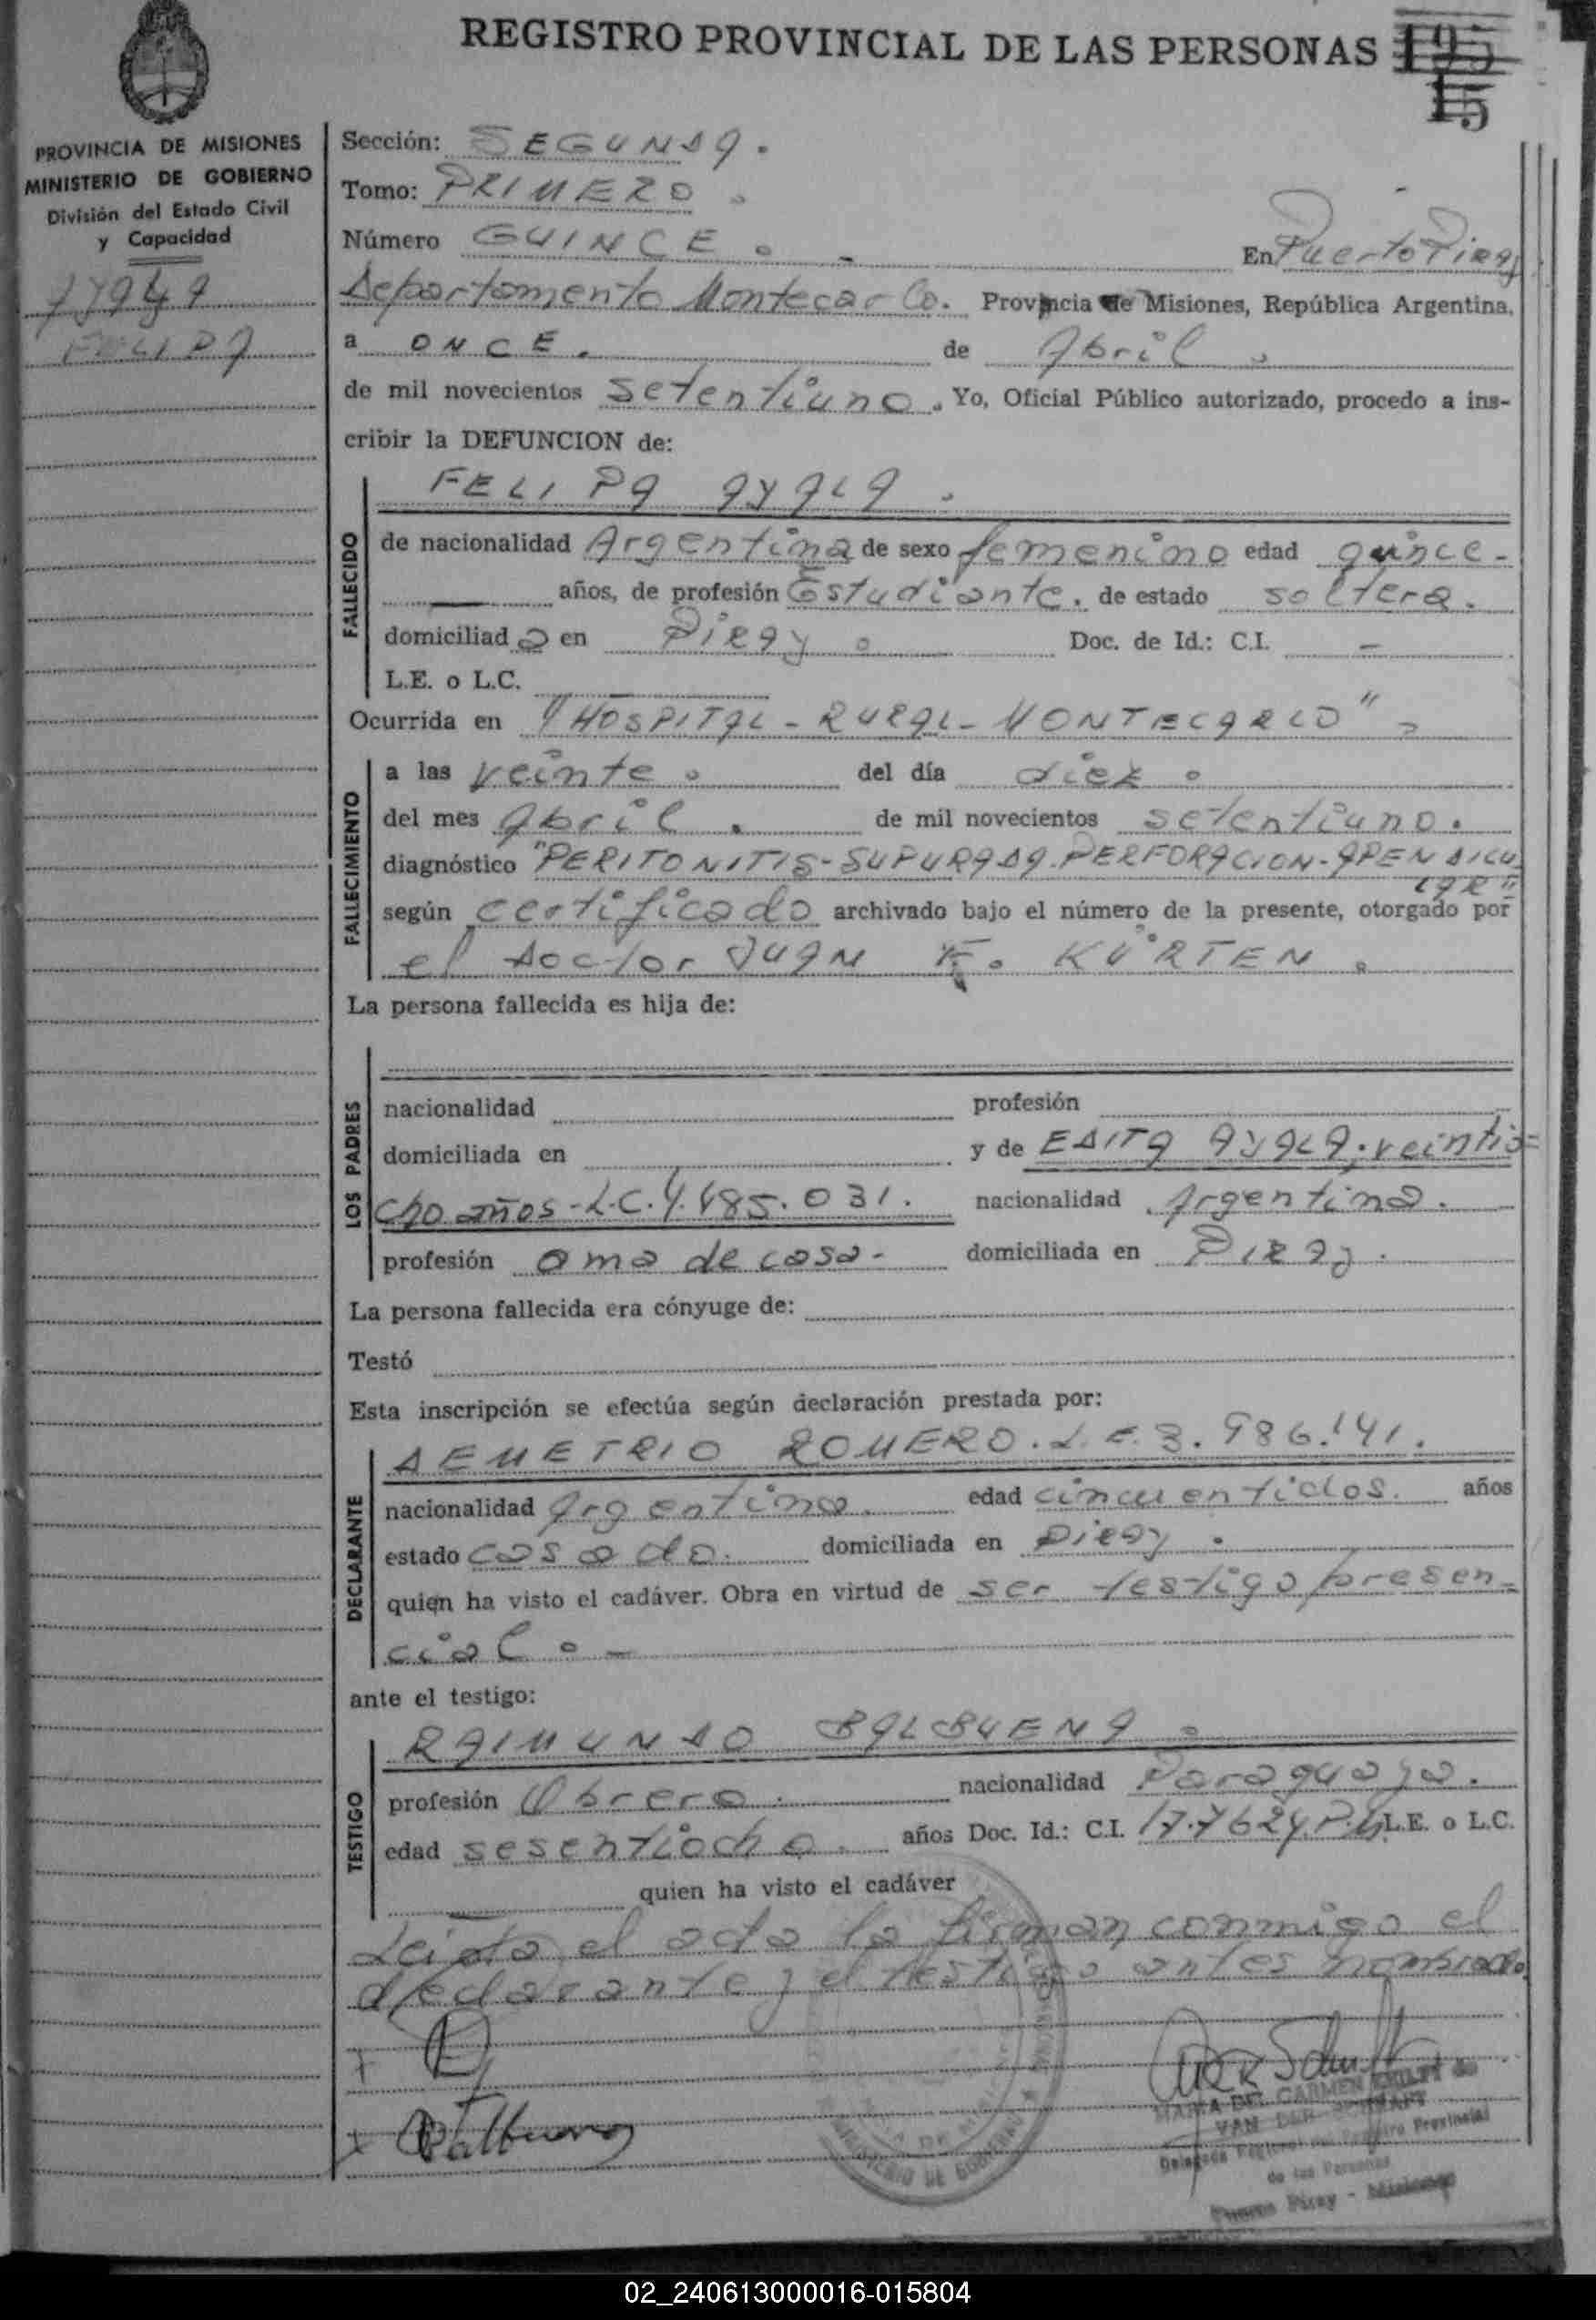 REGISTRO PROVINCIAL DE LAS PERSONAS 195
15
PROVINCIA DE MISIONES
MINISTERIO DE GOBIERNO
División del Estado Civil
y Capacidad
AYALA
FELIPA
Sección: SEGUNDA.
Tomo: PRIMERO.
Número QUINCE. - En Puerto Piray
Departamento Montecarlo. Provincia de Misiones, República Argentina,
a ONCE. de Abril.
de mil novecientos setentiuno. Yo, Oficial Público autorizado, procedo a ins-
cribir la DEFUNCION de:
FELIPA AYALA.
FALLECIDO
de nacionalidad Argentina de sexo femenino edad quince-
años, de profesión Estudiante. de estado soltera.
domiciliad a en Piray. Doc. de Id.: C.I. -
L.E. o L.C.
Ocurrida en "HOSPITAL-RURAL-MONTECARLO".
FALLECIMIENTO
a las veinte. del día diez.
del mes Abril. de mil novecientos setentiuno.
diagnóstico "PERITONITIS-SUPURADA.PERFORACION-APENDICU
LAR"
según certificado archivado bajo el número de la presente, otorgado por
el Doctor JUAN F. KÜRTEN.
La persona fallecida es hija de:
LOS PADRES
nacionalidad profesión
domiciliada en y de EDITA AYALA, veintio=
cho años-L.C.4.485.031. nacionalidad Argentina.
profesión ama de casa- domiciliada en PIRAy.
La persona fallecida era cónyuge de:
Testó
Esta inscripción se efectúa según declaración prestada por:
DECLARANTE
DEMETRIO ROMERO.L.E.3.986.141.
nacionalidad Argentina. edad cincuentidos. años
estado casado. domiciliada en Piray.
quien ha visto el cadáver. Obra en virtud de ser testigo presen-
cial.-
ante el testigo:
TESTIGO
RAIMUNDO BALBUENA.
profesión Obrero. nacionalidad Paraguaya.
edad sesentiocho. años Doc. Id.: C.I. L.E. o L.C.
quien ha visto el cadáver
Leida el acta la firman conmigo el
declarante y el testigo antes nombrado
x
x Balbuena
MARIA DEL CARMEN
VAN DER
Delegada Registro Provincial
de las Personas
Puerto Piray - Misiones
MINISTERIO DE GOBIERNO
02_240613000016-015804